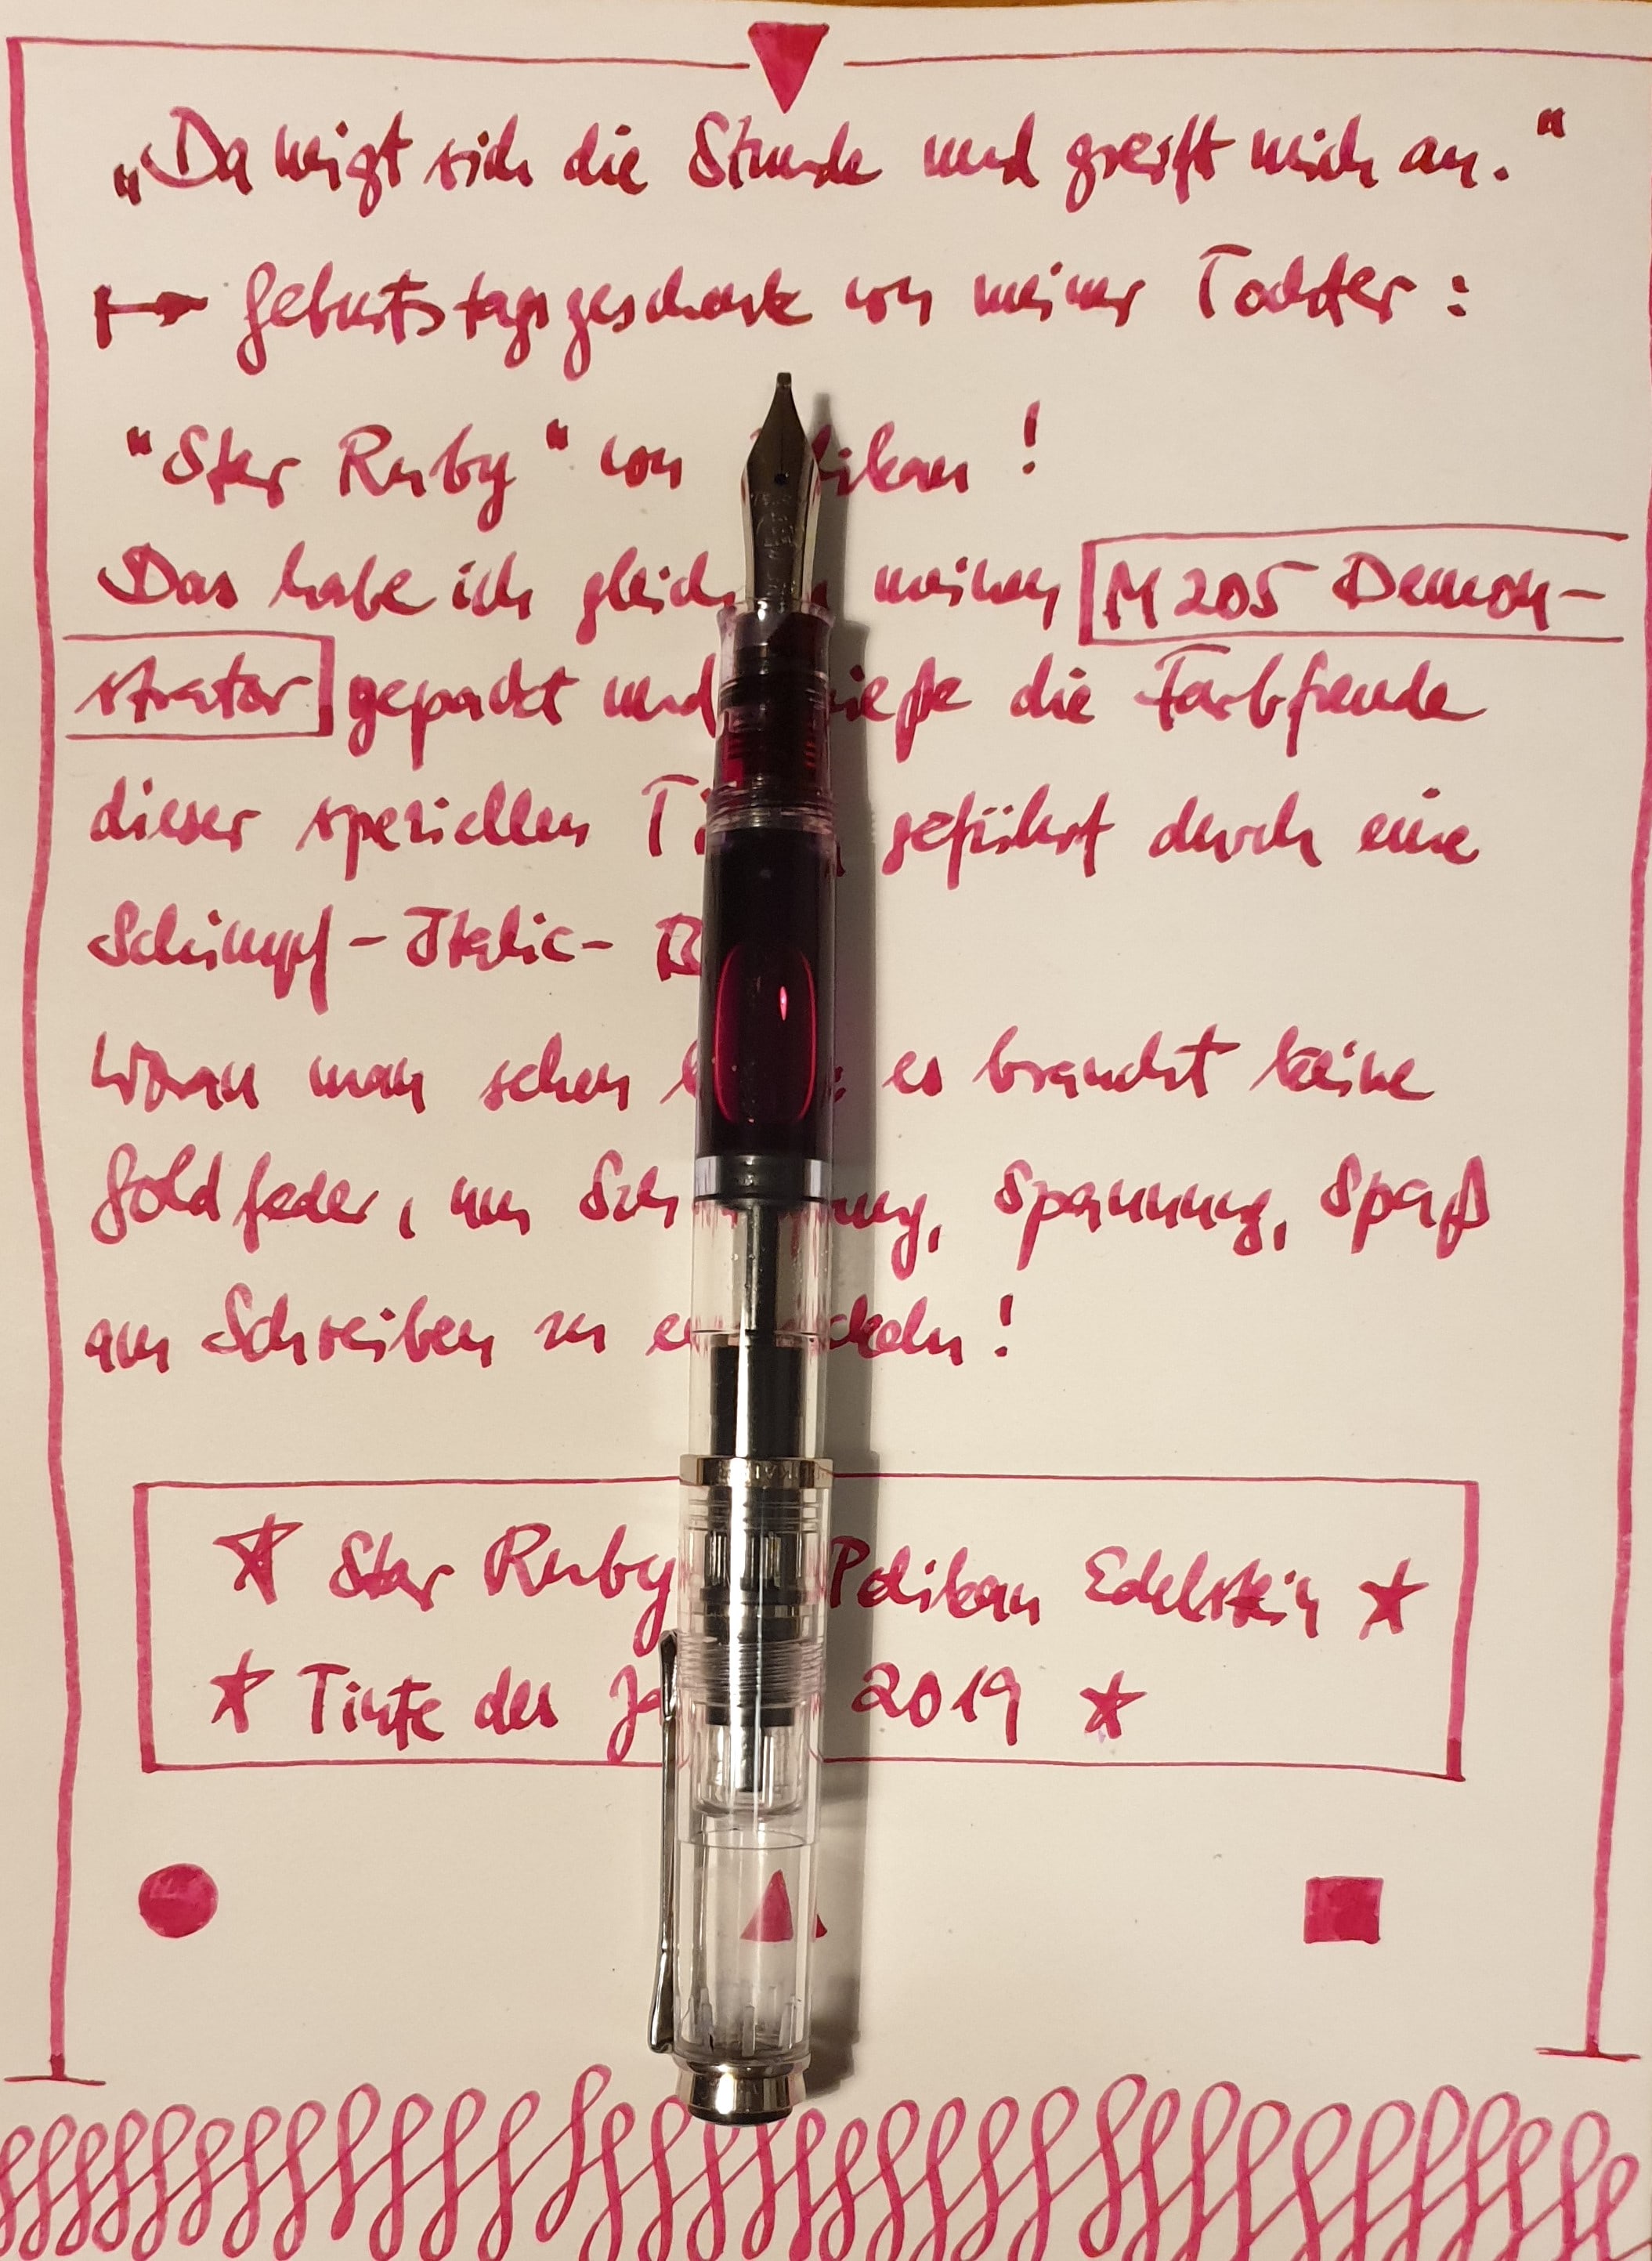 „Da neigt sich die Stunde und greift mich an.“
Geburtstagsgeschenk von meiner Tochter:
"Star Ruby" von !
Das habe ich gleich meinen M205 Demon-
strator gepackt und die Farbfreude
dieser speziellen geführt durch eine
Schimpf-Italic-
Woran man sehen : es braucht keine
Goldfeder, um , Spannung, Spaß
am Schreiben zu !
Star Ruby Pelikan Edelstein
Tinte des 2019